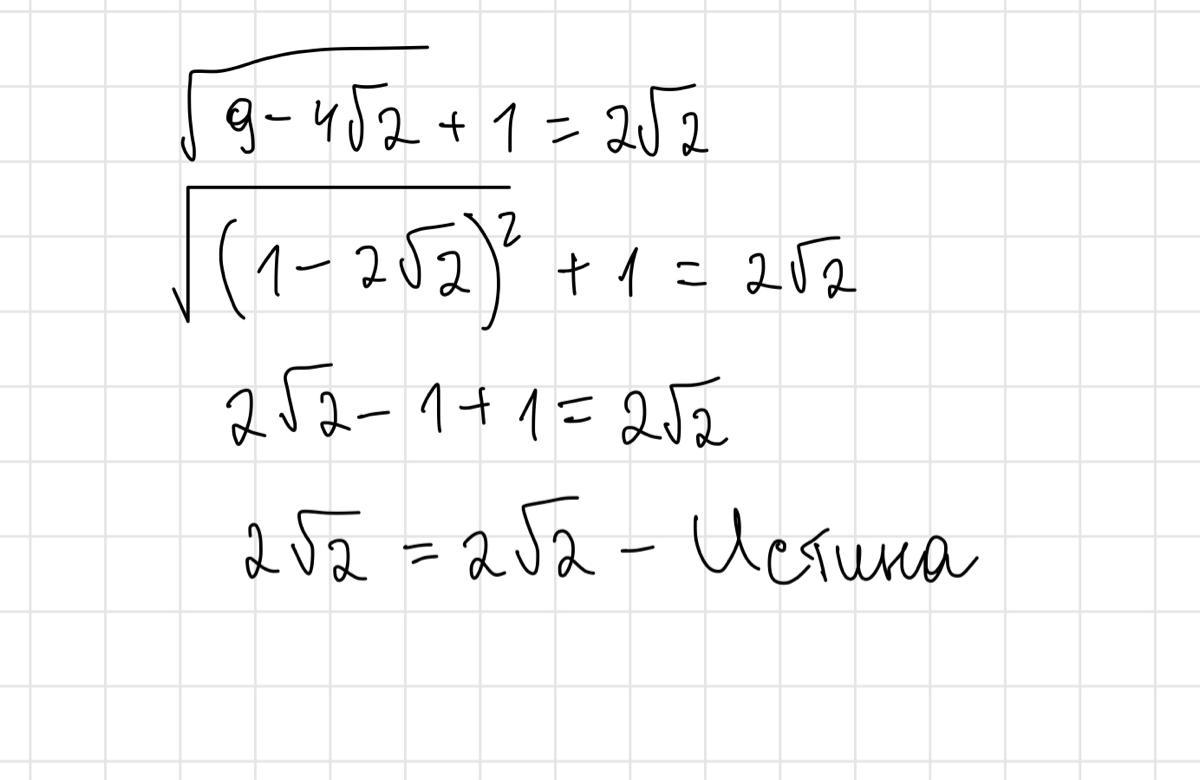 √(9-4√2) + 1 = 2√2
√((1-2√2)²) + 1 = 2√2
2√2 - 1 + 1 = 2√2
2√2 = 2√2 - Истина